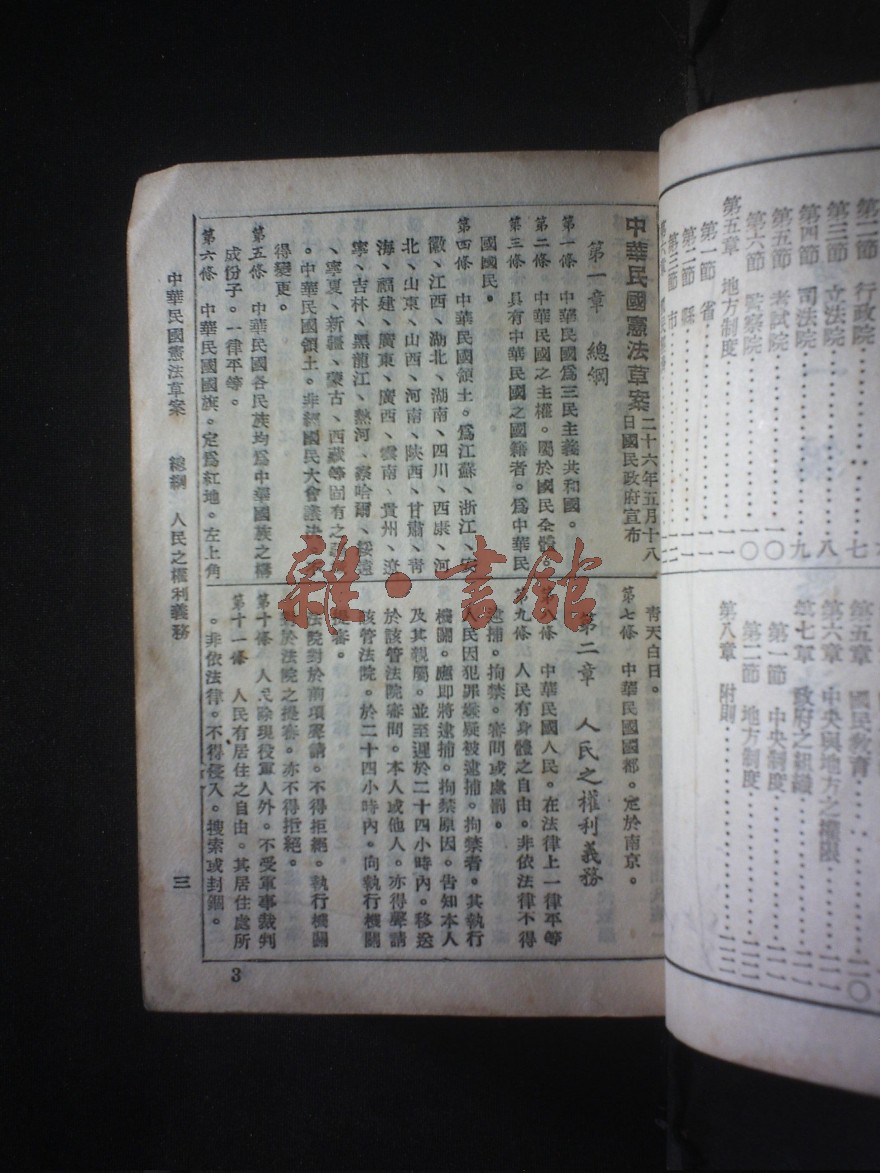 第二節 行政院……七
第三節 立法院……八
第四節 司法院……九
第五節 考試院……一〇
第六節 監察院……一〇
第五章 地方制度……一一
第一節 省……一一
第二節 縣……一一
第三節 市……一二
第五章 國民教育
第六章 中央與地方之權限
第七章 政府之組織
第一節 中央制度
第二節 地方制度
第八章 附則
中華民國憲法草案
二十六年五月十八
日國民政府宣布
第一章 總綱
第一條 中華民國爲三民主義共和國。
第二條 中華民國之主權。屬於國民全體。
第三條 具有中華民國之國籍者。爲中華民
國國民。
第四條 中華民國領土。爲江蘇、浙江、安
徽、江西、湖北、湖南、四川、西康、河
北、山東、山西、河南、陝西、甘肅、青
海、福建、廣東、廣西、雲南、貴州、遼
寧、吉林、黑龍江、熱河、察哈爾、綏遠
、寧夏、新疆、蒙古、西藏等固有之
。中華民國領土。非經國民大會議決不
得變更。
第五條 中華民國各民族均爲中華國族之構
成份子。一律平等。
第六條 中華民國國旗。定爲紅地。左上角
青天白日。
第七條 中華民國國都。定於南京。
第二章 人民之權利義務
第八條 中華民國人民。在法律上一律平等
第九條 人民有身體之自由。非依法律不得
逮捕。拘禁。審問或處罰。
人民因犯罪嫌疑被逮捕。拘禁者。其執行
機關。應即將逮捕。拘禁原因。告知本人
及其親屬。並至遲於二十四小時內。移送
於該管法院審問。本人或他人。亦得聲請
該管法院。於二十四小時內。向執行機關
提審。
法院對於前項聲請。不得拒絕。執行機關
對於法院之提審。亦不得拒絕。
第十條 人民除現役軍人外。不受軍事裁判
第十一條 人民有居住之自由。其居住處所
。非依法律。不得侵入。搜索或封錮。
中華民國憲法草案 總綱 人民之權利義務 三
3
雜·書館